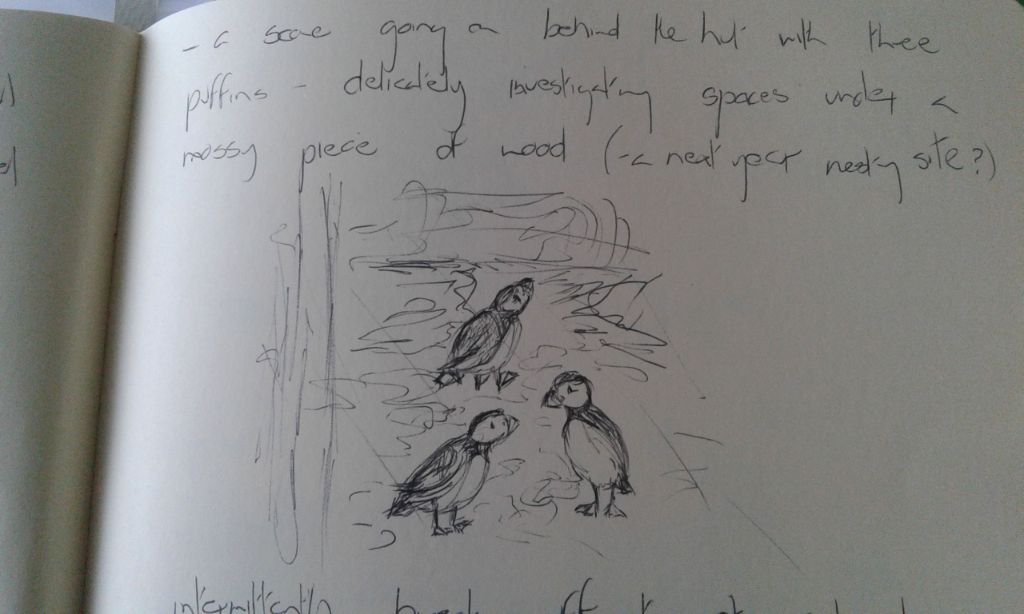 - a scene going on behind the hut with three
puffins - delicately investigating spaces under a
mossy piece of wood (-a next year nesting site?)
intermittently